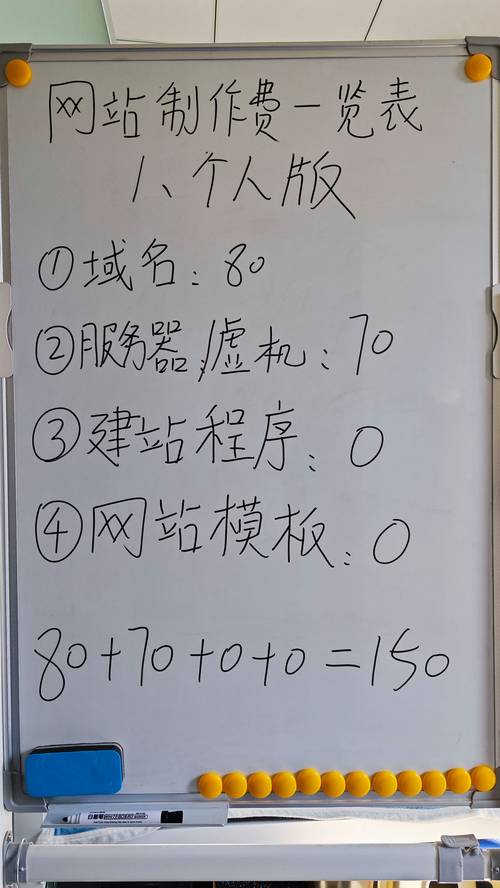 网站制作费一览表
1、个人版
①域名：80
②服务器,虚机：70
③建站程序：0
④网站模板：0
80+70+0+0=150